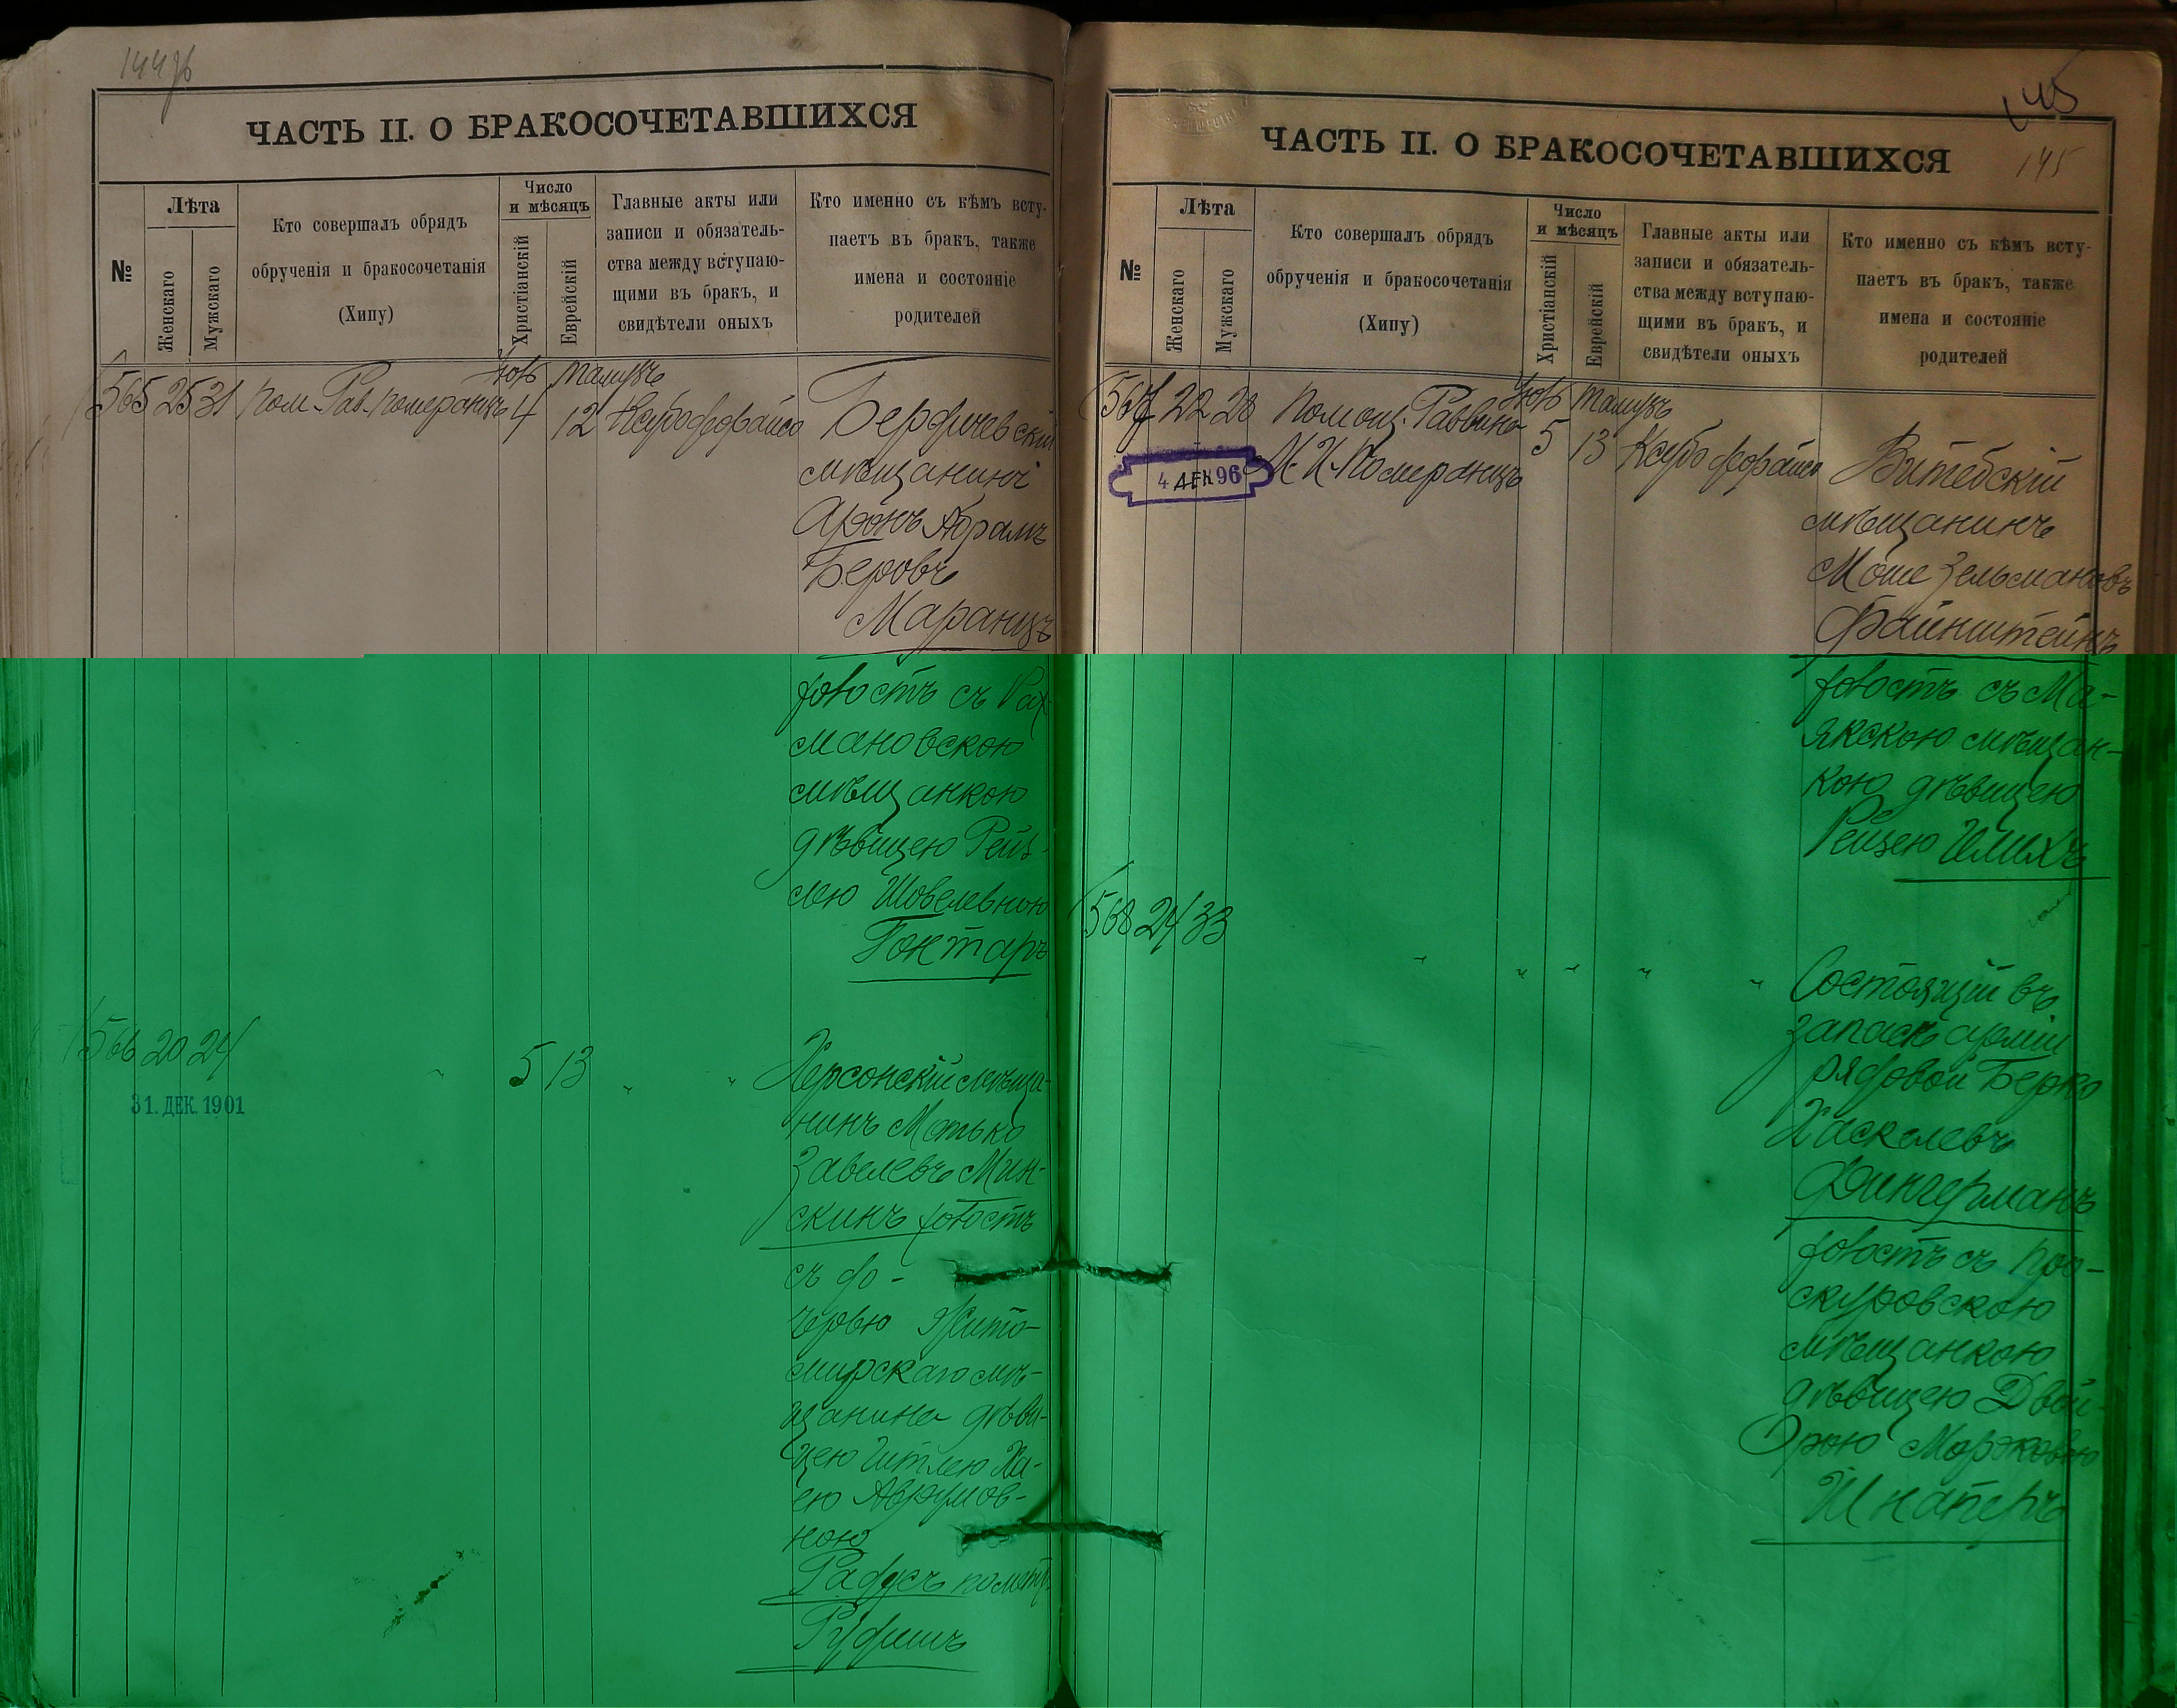 144об
ЧАСТЬ II. О БРАКОСОЧЕТАВШИХСЯ
№
Лѣта
Женскаго
Мужскаго
Кто совершалъ обрядъ
обрученія и бракосочетанія
(Хипу)
Число
и мѣсяцъ
Христіанскій
Еврейскій
Главные акты или
записи и обязатель-
ства между вступаю-
щими въ бракъ, и
свидѣтели оныхъ
Кто именно съ кѣмъ всту-
паетъ въ бракъ, также
имена и состояніе
родителей
565 25 31 Пом. Рав. Померанцъ 4 12
Бердичевскій
мѣщанинъ
Аронъ Абрамъ
Беровъ
Маранцъ
съ Рах-
мановскою
мѣщанкою
дѣвицею Рейз-
лею Шовелевною
Гоктаръ
566 20 24 " 5 13 " "
31. ДЕК. 1901
Херсонскій мѣща-
нинъ Мотько
Завелевъ Мин-
скинъ
съ до-
черью Жито-
мирскаго мѣ-
щанина дѣви-
цею Гитлею Ха-
ею Аврумов-
ною
Радусъ
145
ЧАСТЬ II. О БРАКОСОЧЕТАВШИХСЯ
145
№
Лѣта
Женскаго
Мужскаго
Кто совершалъ обрядъ
обрученія и бракосочетанія
(Хипу)
Число
и мѣсяцъ
Христіанскій
Еврейскій
Главные акты или
записи и обязатель-
ства между вступаю-
щими въ бракъ, и
свидѣтели оныхъ
Кто именно съ кѣмъ всту-
паетъ въ бракъ, также
имена и состояніе
родителей
567 22 28 Помощ. Раввина 5 13
М. И. Померанцъ
4 ДЕК 96
Витебскій
мѣщанинъ
Моше Зельмановъ
Файнштейнъ
съ Ма-
якскою мѣщан-
кою дѣвицею
Рейзею
568 24 33 " " " " "
Состоящій въ
запасѣ арміи
рядовой Берко
Хаскелевъ
Фингерманъ
съ Про-
скуровскою
мѣщанкою
дѣвицею Двой-
рою Морковою
Шнаперъ